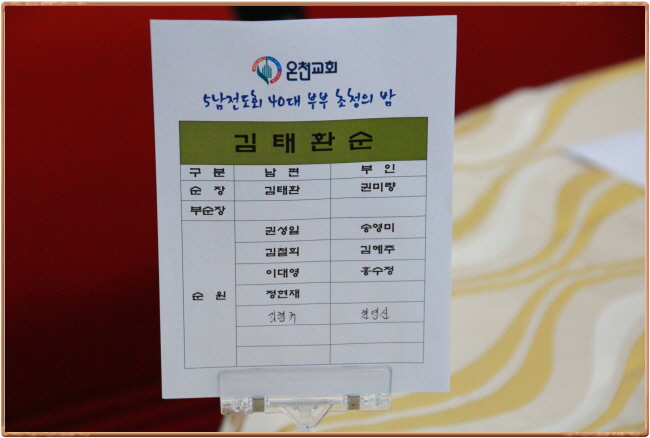 온천교회
5남전도회 40대 부부 초청의 밤
김태환순
구분 남편 부인
순장 김태환 권미량
부순장
순원
권성일 송영미
김철회 김예주
이대영 홍수정
정현재